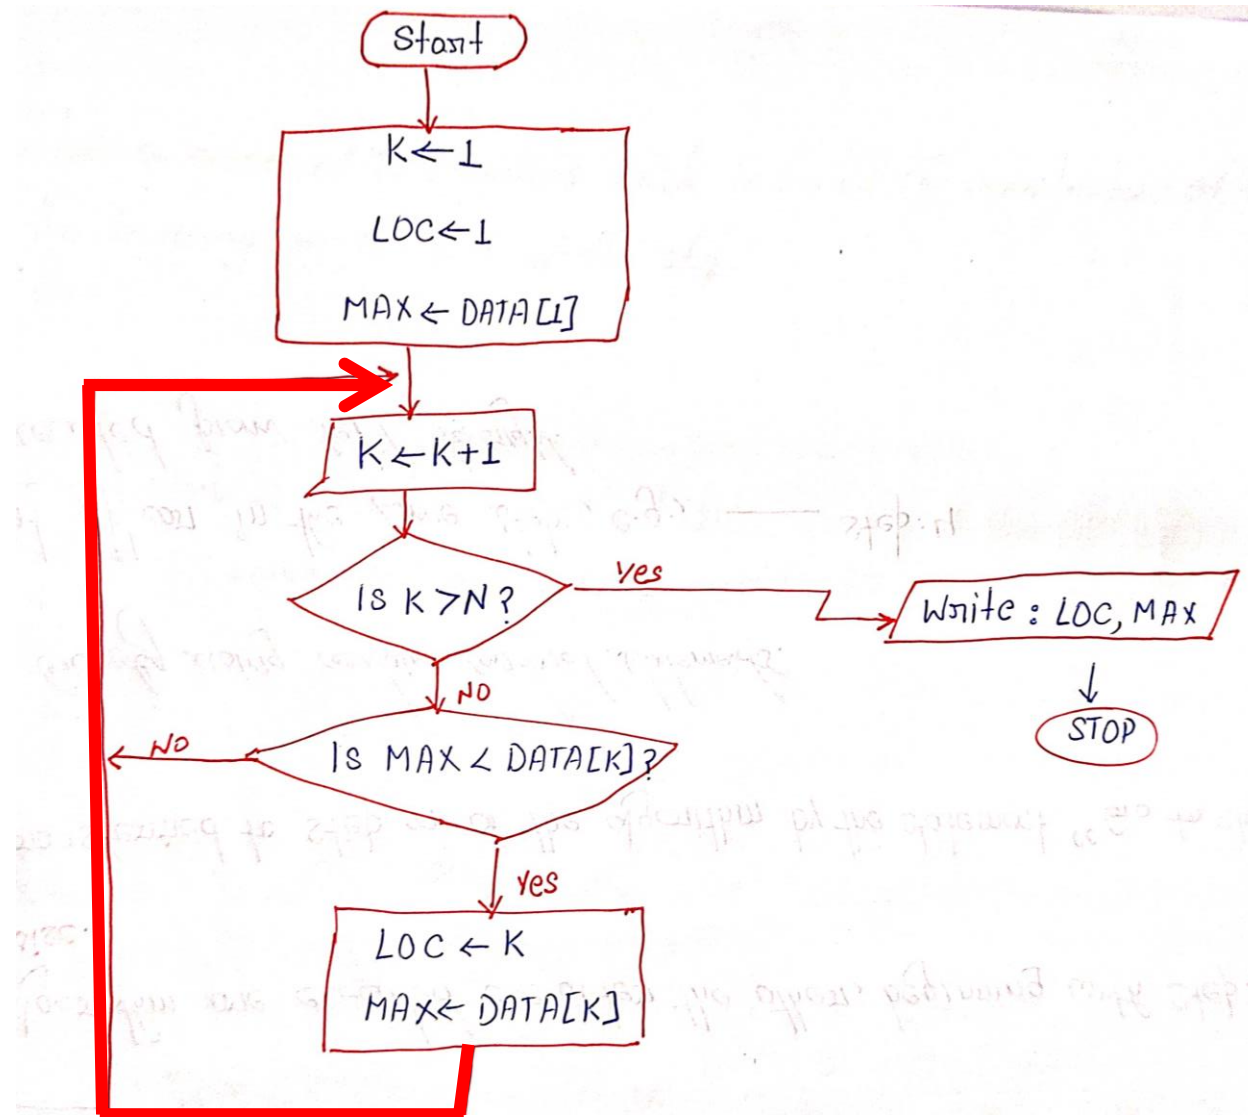 Start
K←1
LOC←1
MAX←DATA[1]
K←K+1
IS K>N?
Yes
Write: LOC, MAX
STOP
NO
IS MAX < DATA[K]?
NO
Yes
LOC ← K
MAX← DATA[K]